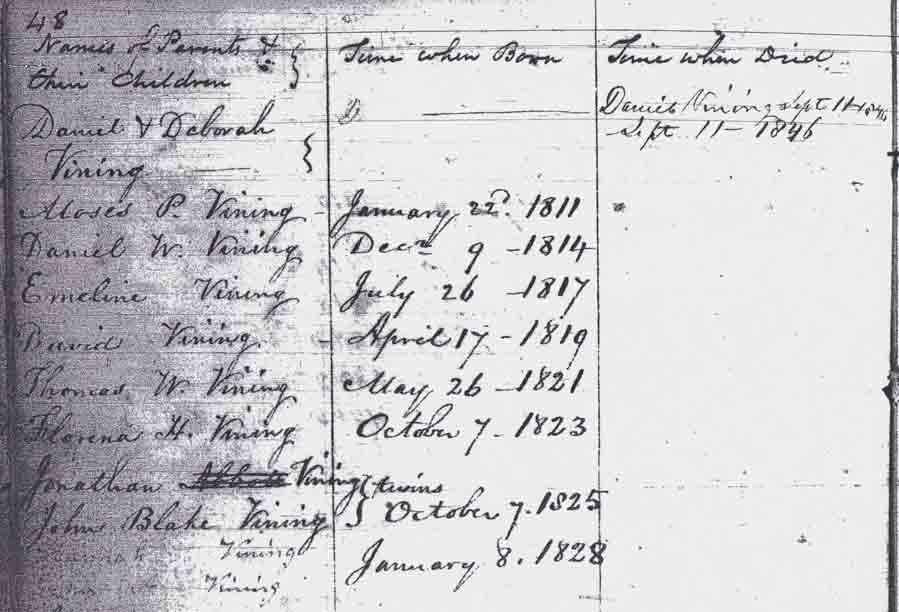 48
Names of Parents & Time when Born Time when Died
their Children
Daniel & Deborah Daniel Vining Sept 11 1846
Vining Sept. 11 - 1846
Moses P. Vining - January 22d. 1811
Daniel W. Vining Decr 9 - 1814
Emeline Vining July 26 - 1817
David Vining. - April 17 - 1819
Thomas W. Vining May 26 - 1821
Florena H. Vining October 7 - 1823
Jonathan Vining twins
John Blake Vining October 7. 1825
Vining January 8. 1828
Vining